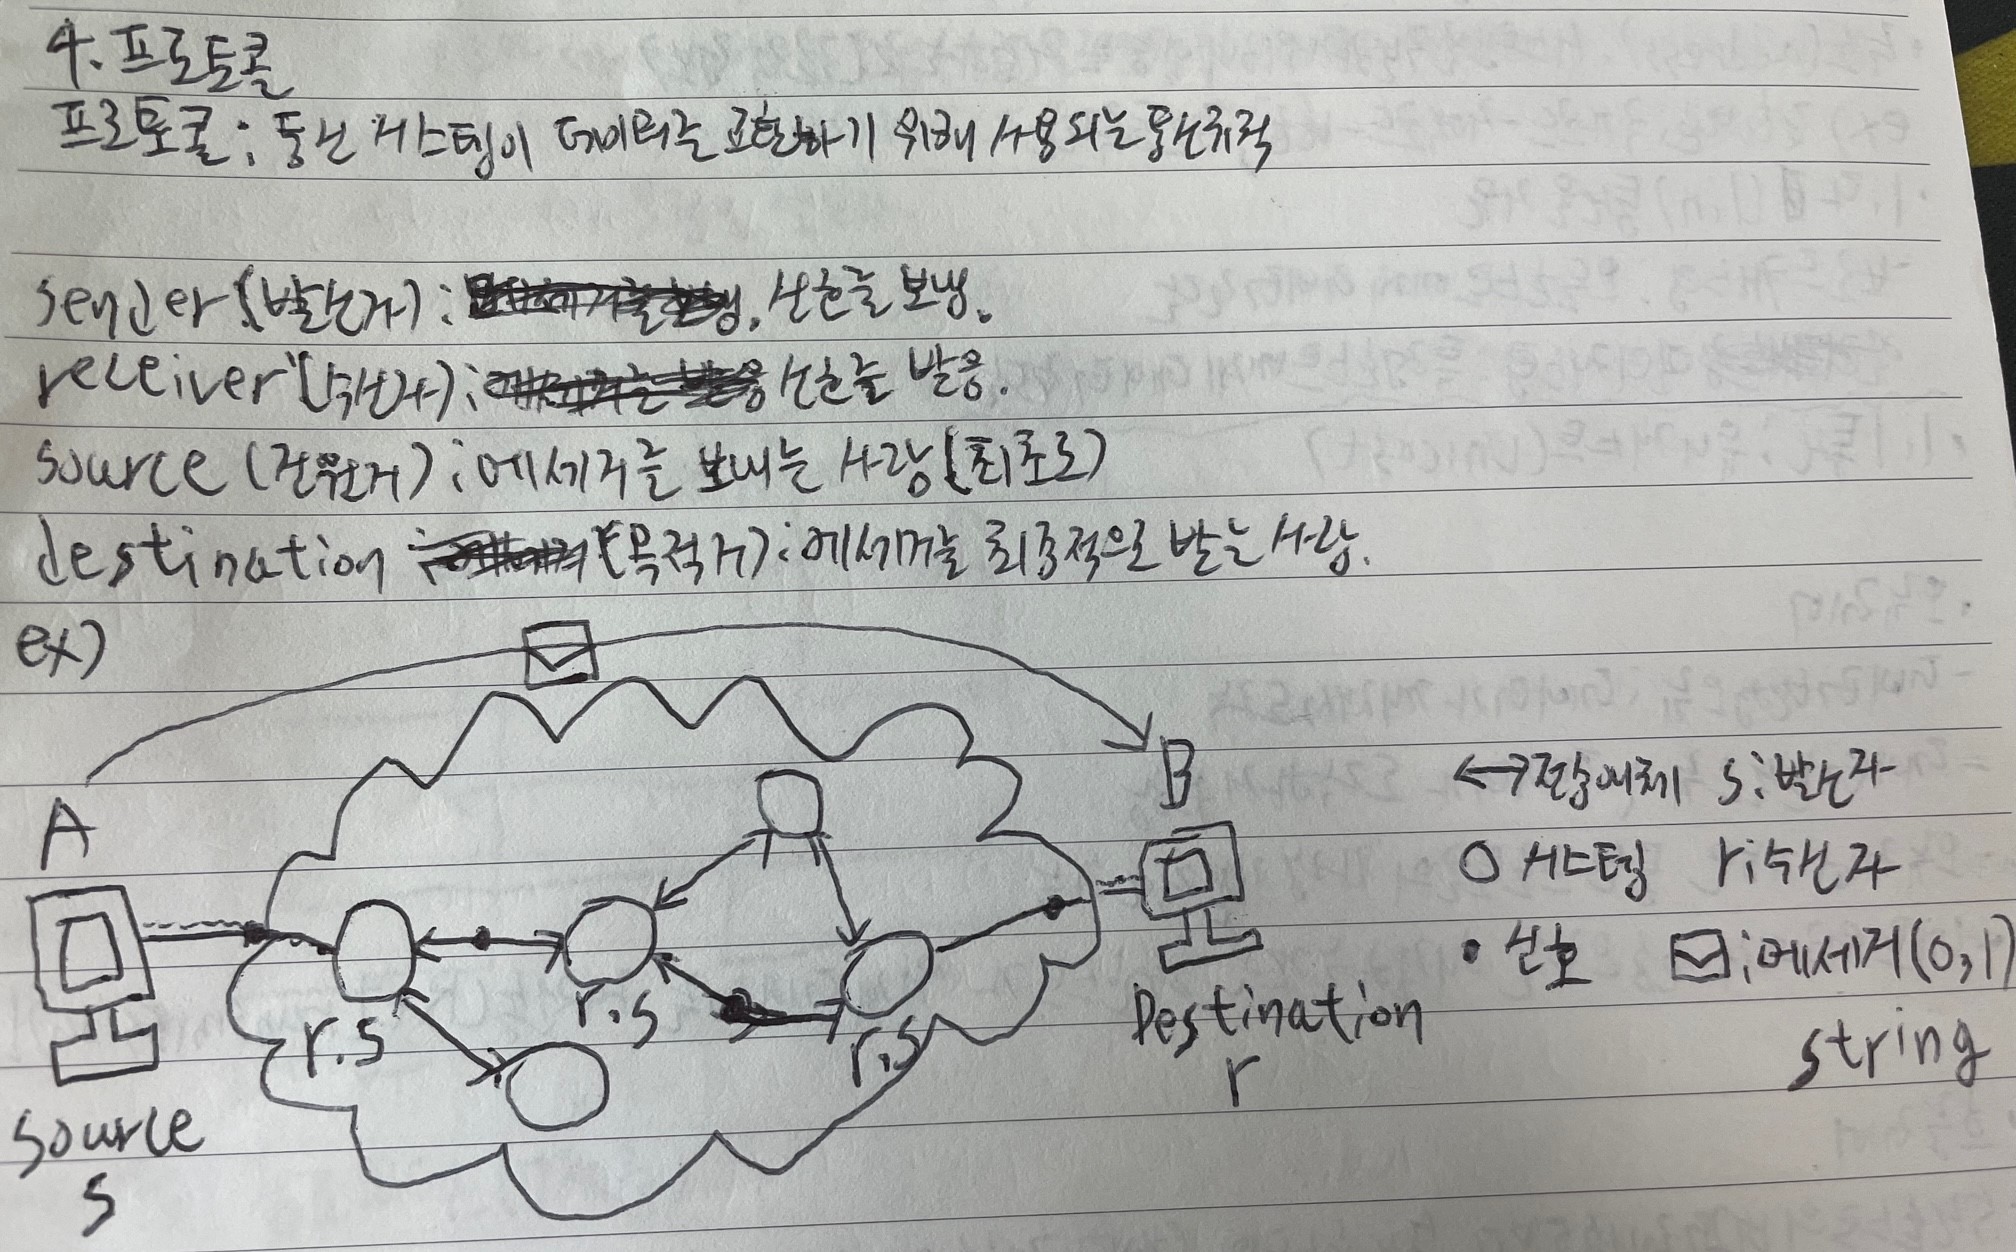 4. 프로토콜
프로토콜: 통신 시스템이 데이터를 교환하기 위해 사용되는 통신규칙
sender (발신자): 신호를 보냄.
receiver (수신자): 신호를 받음.
source (전원지): 메세지를 보내는 사람(최초로)
destination (목적지): 메세지를 최종적으로 받는 사람.
ex)
A
B
source
s
r.s
r.s
r.s
Destination
r
↔전송매체 s:발신자
O 시스템 r:수신자
• 신호 :메세지(0,1)
string